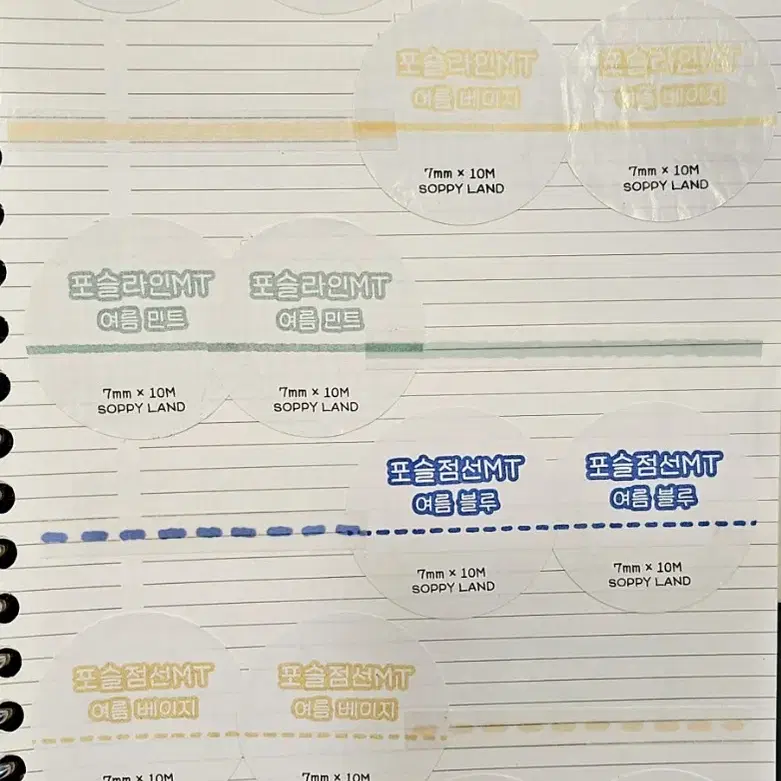 포슬라인MT
여름 베이지
7mm × 10M
SOPPY LAND
포슬라인MT
여름 베이지
7mm × 10M
SOPPY LAND
포슬라인MT
여름 민트
7mm × 10M
SOPPY LAND
포슬라인MT
여름 민트
7mm × 10M
SOPPY LAND
포슬점선MT
여름 블루
7mm × 10M
SOPPY LAND
포슬점선MT
여름 블루
7mm × 10M
SOPPY LAND
포슬점선MT
여름 베이지
7mm × 10M
포슬점선MT
여름 베이지
7mm × 10M